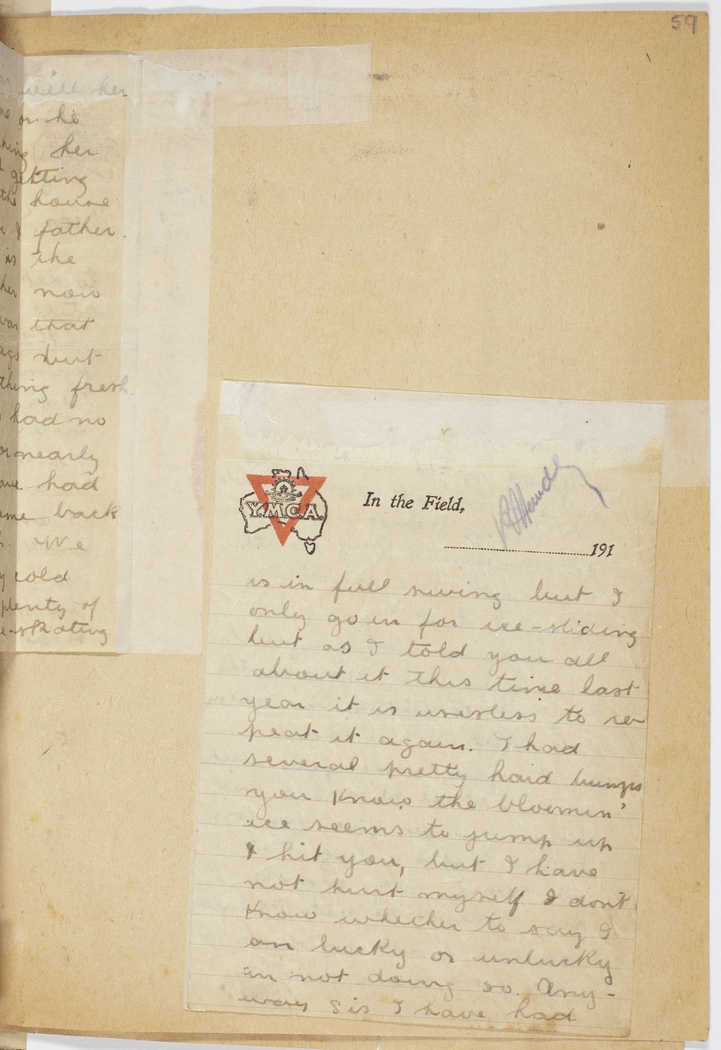 59
will her
or he
her
getting
the house
& father.
is the
her now
that
ago but
thing fresh
had no
or nearly
had
me back
We
cold
plenty of
e-skating
YMCA
In the Field,
191
is in full swing but I
only go in for ice-sliding
but as I told you all
about it this time last
year it is useless to re
peat it again. I had
several pretty hard bumps
you know the bloomin'
ice seems to jump up
& hit you, but I have
not hurt myself & don't
know whether to say I
am lucky or unlucky
in not doing so. Any-
way Sis I have had